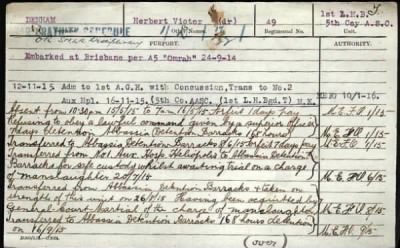 DENHAM Herbert Victor (dr) 49 1st L.H.B.T.
5th Coy A.S.C.
Regimental No.
Embarked at Brisbane per A5 "Omrah" 24-9-14
12-11-15 Adm to 1st A.G.H. with Concussion, Trans to No.2
Aux Hpl. 16-11-15. (5th Co.AASC. (1st L.H.Bgd.T) M.E. 10/1-16.
Absent from 10.30pm 15/5/15 to 7am 16/5/15 forfeit 1 days pay M.E.F.O 1/15
Refusing to obey a lawful command given by a superior officer
7 days detention Abbassia Detention Barracks 168 hours
Transferred to Abbassia Detention Barracks 8/6/15 forfeit 7 days pay
Transferred from No1 Aust Hosp Heliopolis to Abbassia Detention
Barracks in safe custody whilst awaiting trial on a charge
of manslaughter 20/7/15
Transferred from Abbassia Detention Barracks & taken on
strength of this unit on 26/8/15 Having been acquitted by
General Court Martial of the charge of manslaughter
Transferred to Abbassia Detention Barracks 168 hours detention
on 16/9/15